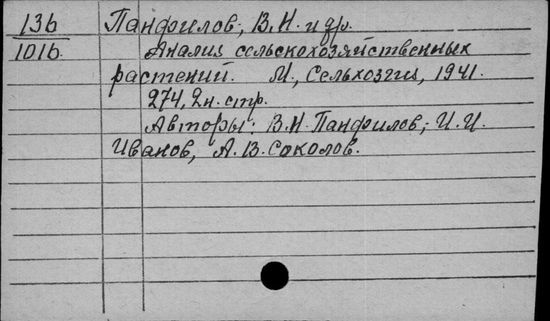 13б Панфилов, В.Н. и др.
101б. Анализ сельскохозяйственных
растений. М., Сельхозгиз, 1941.
274, 2н. стр.
Авторы: В.Н. Панфилов, И.И.
Иванов, А.В. Соколов.